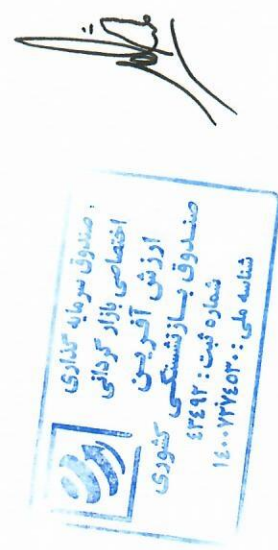 صندوق سرمایه گذاری
اختصاصی بازار گردانی
ارزش آفرین
صندوق بازنشستگی کشوری
شماره ثبت : ۴۳۶۹۲
شناسه ملی : ۱۴۰۰۷۳۷۴۵۳۰